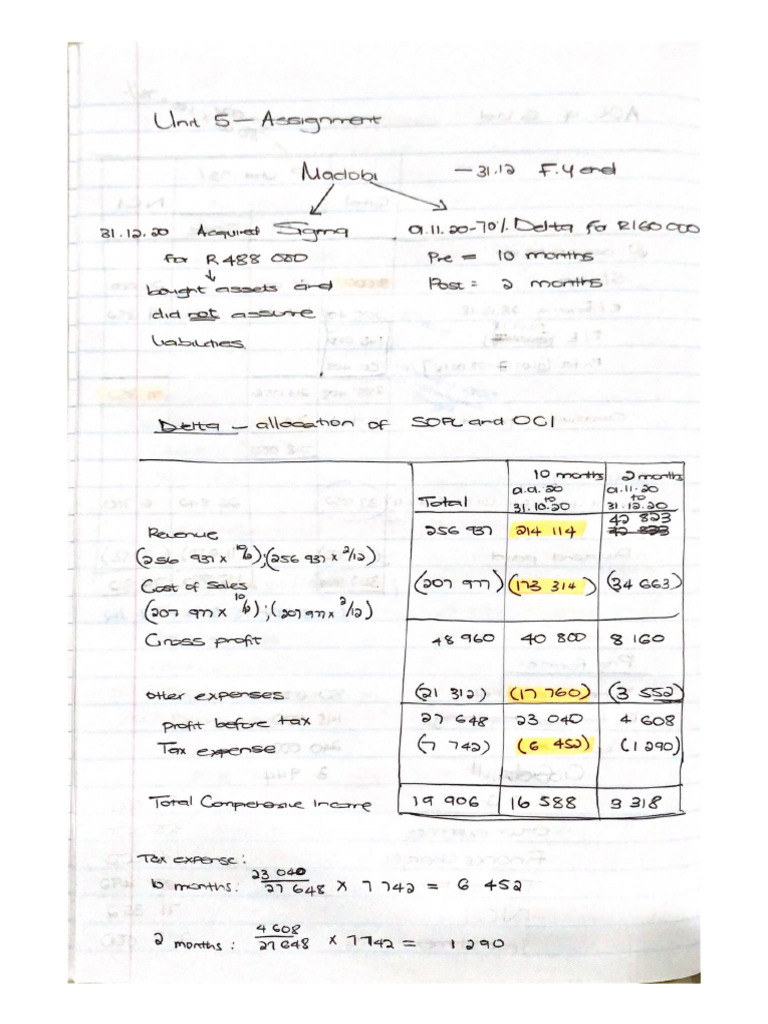 Unit 5 – Assignment
Madobi – 31.12 F.Y end
31.12.20 Acquired Sigma
for R488 000
bought assets and
did not assume
liabilities
a.11.20-70% Delta for R160 000
Pre = 10 months
Post = 2 months
Delta – allocation of SOPL and OCI
10 months 2 months
a.a.20 a.11.20
to to
Total 31.10.20 31.12.20
Revenue 256 937 214 114 42 823
(256 937 x 10/12);(256 937 x 2/12)
Cost of sales (207 977) (173 314) (34 663)
(207 977 x 10/12);(207 977 x 2/12)
Gross profit 48 960 40 800 8 160
Other expenses (21 312) (17 760) (3 552)
profit before tax 27 648 23 040 4 608
Tax expense (7 742) (6 452) (1 290)
Total Comperensive Income 19 906 16 588 3 318
Tax expense:
10 months: 23 040/27 648 x 7 742 = 6 452
2 months: 4 608/27 648 x 7742 = 1 290